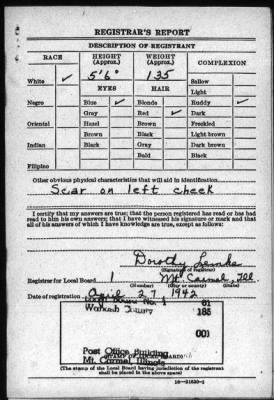 REGISTRAR'S REPORT
DESCRIPTION OF REGISTRANT
RACE HEIGHT (Approx.) WEIGHT (Approx.) COMPLEXION
White ✓ 5'6" 135 Sallow
EYES HAIR Light
Negro Blue ✓ Blonde Ruddy ✓
Gray Red ✓ Dark
Oriental Hazel Brown Freckled
Brown Black Light brown
Indian Black Gray Dark brown
Bald Black
Filipino
Other obvious physical characteristics that will aid in identification
Scar on left cheek
I certify that my answers are true; that the person registered has read or has had
read to him his own answers; that I have witnessed his signature or mark and that
all of his answers of which I have knowledge are true, except as follows:
Dorothy Lemke
(Signature of registrar)
Registrar for Local Board 1 Mt Carmel, Ill
(Number) (City or county) (State)
Date of registration April 27 1942
No. 1 81
Wabash County 185
001
Post Office Building
Mt. Carmel Illinois
(STAMP OF LOCAL BOARD)
(The stamp of the Local Board having jurisdiction of the registrant
shall be placed in the above space)
16—21630-1